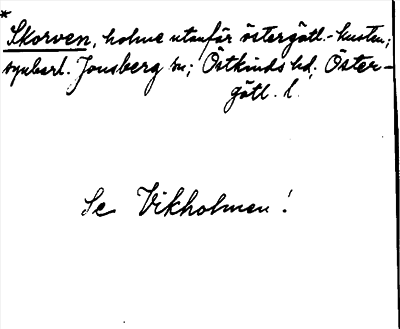 *
Skorven, holme utanför östergötl.-kusten;
synbarl. Jonsberg sn; Östkinds hd, Öster-
götl. l.
Se Vikholmen!